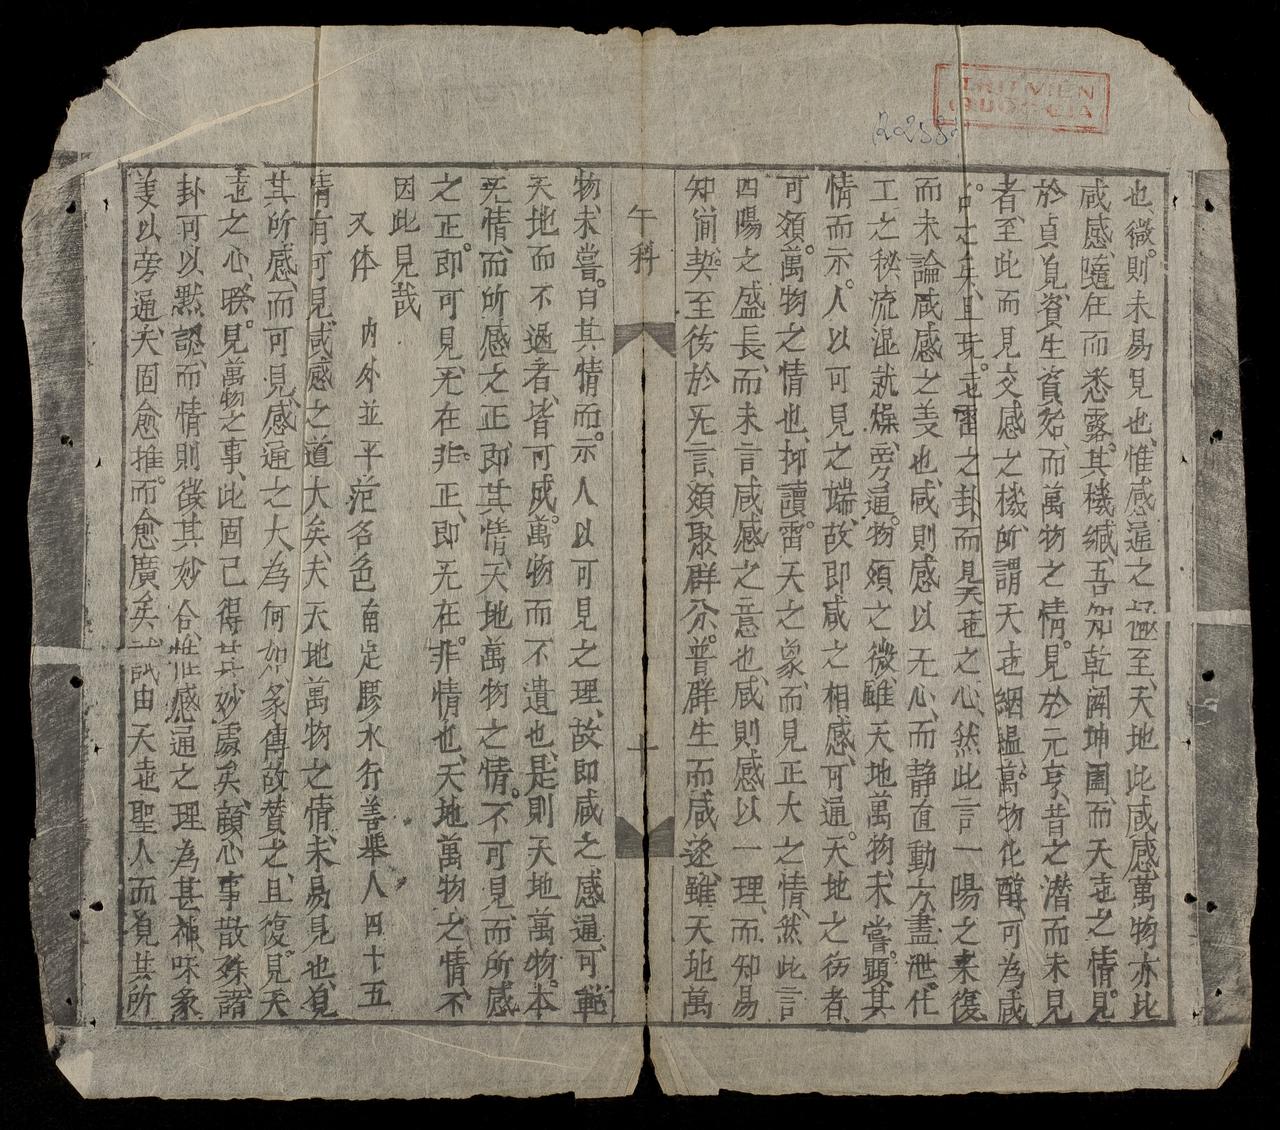 THƯ VIỆN
QUỐC GIA
也微則未易見也惟感通之極至天地此咸感萬物亦此
咸感隨在而悉露其機緘吾知乾闢坤闔而天地之情見
於貞見資生資始而萬物之情見於元亨昔之潜而未見
者至此而見交感之機所謂天地絪縕萬物化醇可為咸
之卦而見天地之心然此言一陽之來復
而未論咸感之義也咸則感以无心而静直動方盡泄化
工之秘流湿就燥旁通物類之微雖天地萬物未嘗顕其
情而示人以可見之端故即咸之相感可通天地之彷者
可類萬物之情也抑讀雷天之象而見正大之情然此言
四陽之盛長而未言咸感之意也咸則感以一理而知易
知簡契至彷於无言類聚群分普群生而咸遂雖天地萬
午科
十
物未嘗白其情而示人以可見之理故即咸之感通可範
天地而不過者皆可成萬物而不遺也是則天地萬物本
无情而所感之正即其情天地萬物之情不可見而所感
之正即可見无在非正即无在非情也天地萬物之情不
因此見哉
又体 内外並平范各色 南定膠水行善舉人四十五
情有可見咸感之道大矣夫天地萬物之情未易見也見
其所感而可見感通之大為何如彖傳故賛之且復見天
地之心睽見萬物之事此固已得其妙處矣顧心事散殊諸
卦可以黙認而情則徵其妙合惟感通之理為甚神味彖
義以旁通夫固愈推而愈廣矣試由天地聖人而見其所